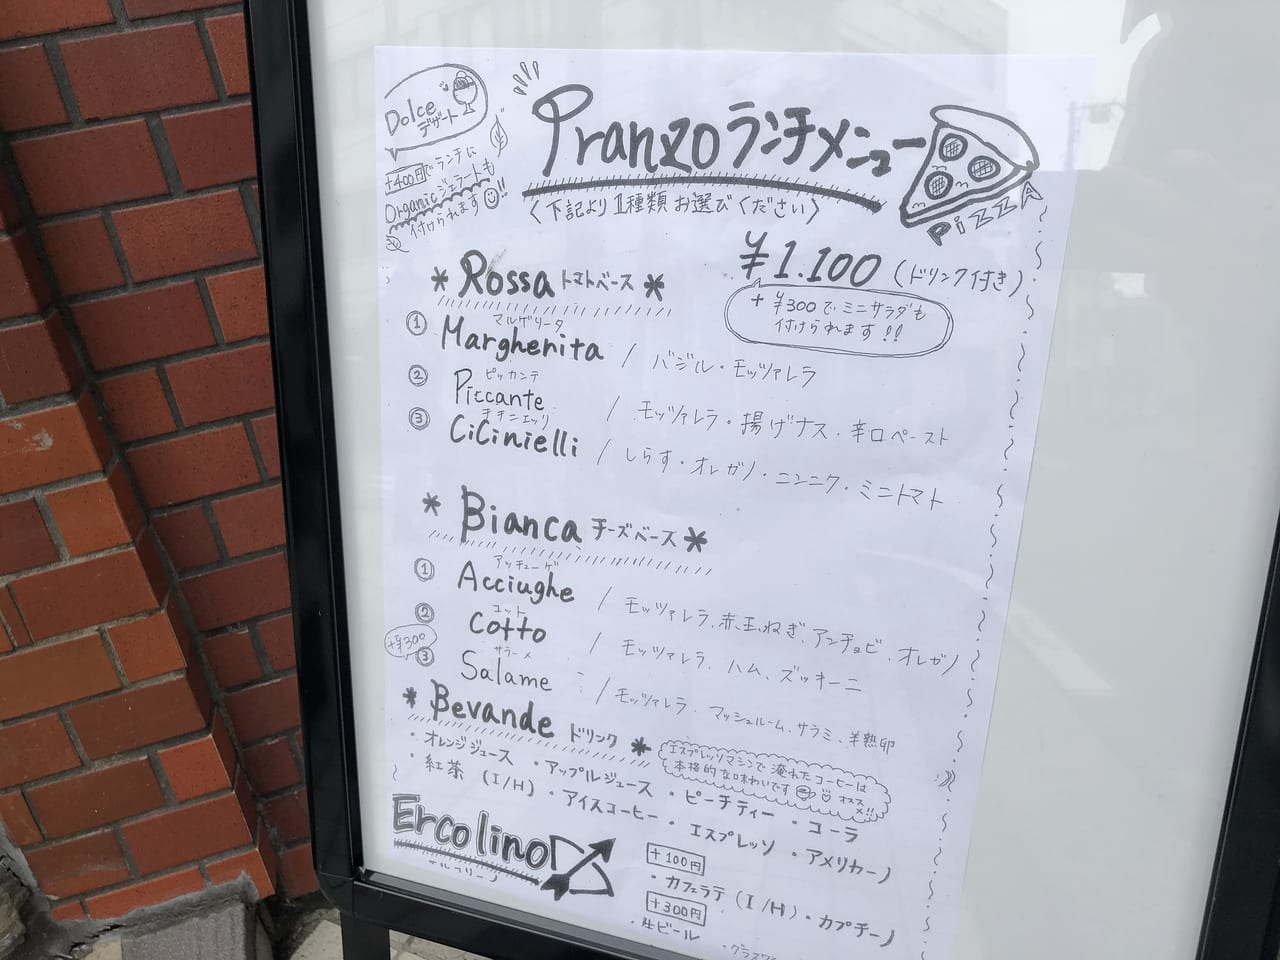 Dolce
デザート
+400円でランチに
Organicジェラートも
付けられます
Pranzo ランチメニュー
〈下記より1種類お選びください〉
PIZZA
¥1.100 (ドリンク付き)
+ ¥300でミニサラダも
付けられます!!
* Rossa トマトベース *
マルゲリータ
① Margherita / バジル・モッツァレラ
ピッカンテ
② Piccante / モッツァレラ・揚げナス・辛口ペースト
チチニエッリ
③ CiCinielli / しらす・オレガノ・ニンニク・ミニトマト
* Bianca チーズベース *
アッチューゲ
① Acciughe / モッツァレラ、赤玉ねぎ、アンチョビ、オレガノ
コット
② Cotto / モッツァレラ、ハム、ズッキーニ
+¥300
サラーメ
③ Salame / モッツァレラ、マッシュルーム、サラミ、半熟卵
* Bevande ドリンク *
エスプレッソマシンで淹れたコーヒーは
本格的な味わいです オススメ!!
・オレンジジュース ・アップルジュース ・ピーチティー ・コーラ
・紅茶 (I/H)・アイスコーヒー・エスプレッソ ・アメリカーノ
+100円
・カフェラテ (I/H)・カプチーノ
+300円
・生ビール
Ercolino